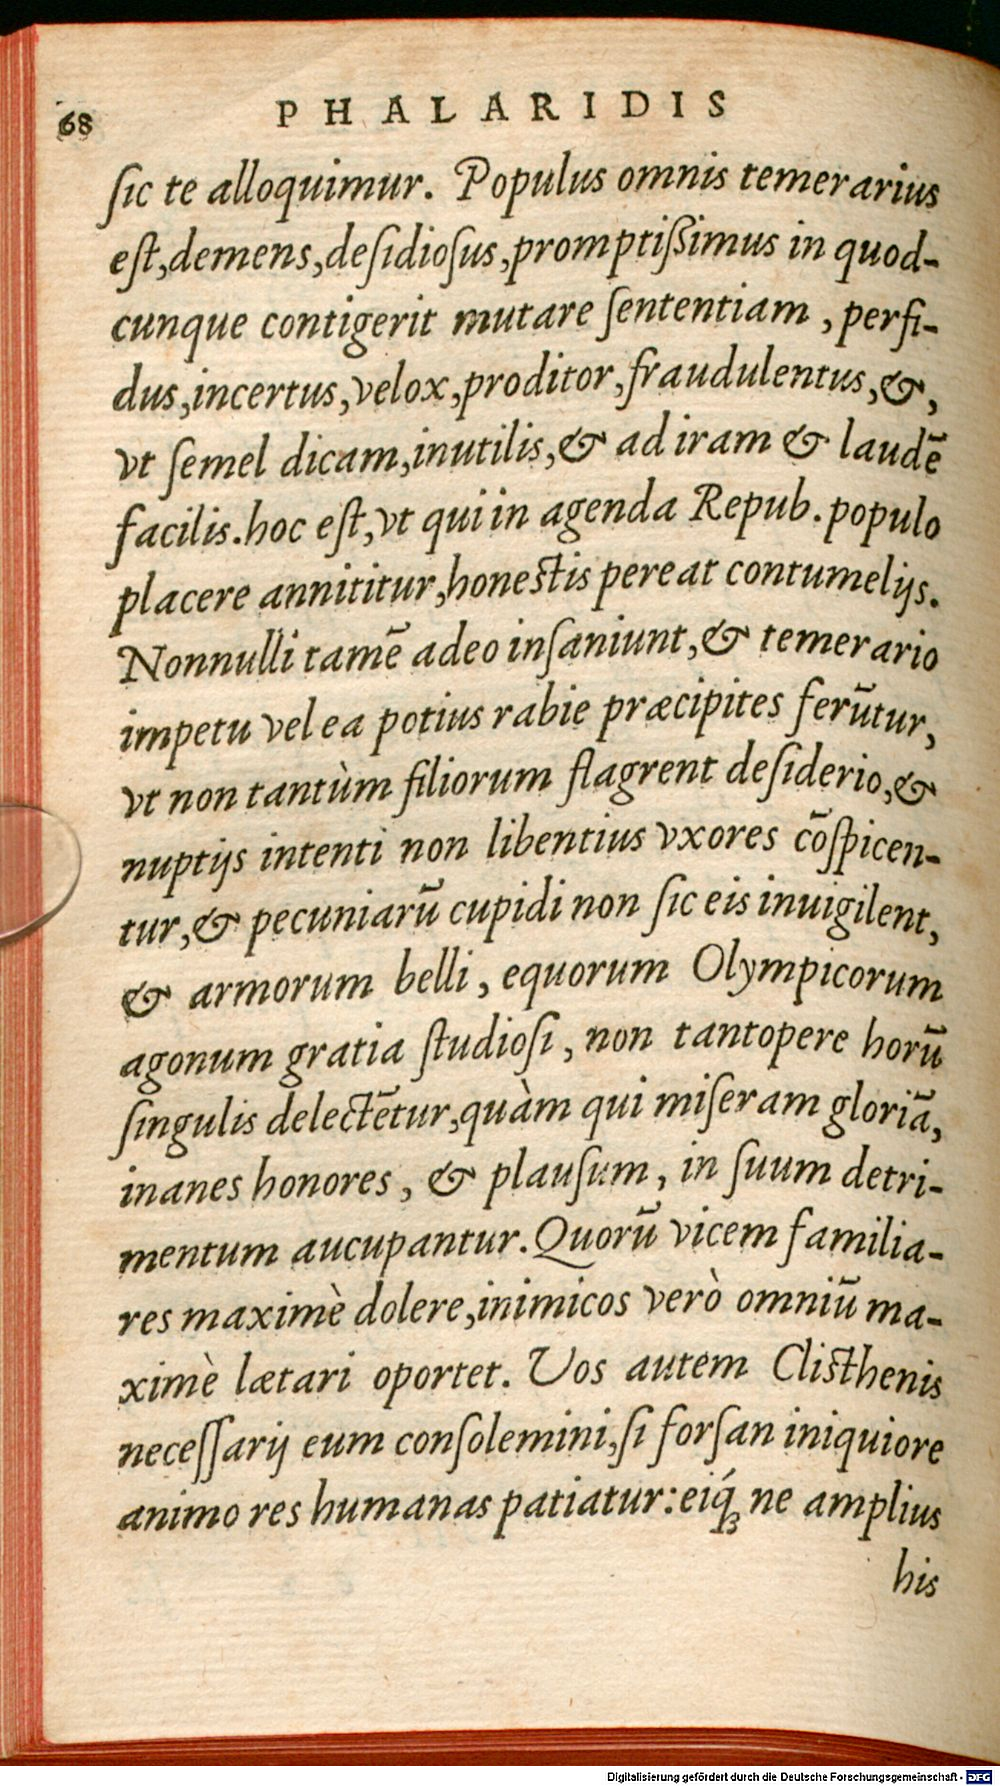 68 PHALARIDIS
ſic te alloquimur. Populus omnis temerarius
eſt, demens, deſidioſus, promptißimus in quod-
cunque contigerit mutare ſententiam, perfi-
dus, incertus, velox, proditor, fraudulentus, &,
vt ſemel dicam, inutilis, & ad iram & laudē
facilis. hoc eſt, vt qui in agenda Repub. populo
placere annititur, honeſtis pereat contumelijs.
Nonnulli tamē adeo inſaniunt, & temerario
impetu vel ea potius rabie præcipites ferūtur,
vt non tantùm filiorum flagrent deſiderio, &
nuptijs intenti non libentius vxores cōſpicen-
tur, & pecuniarū cupidi non ſic eis inuigilent,
& armorum belli, equorum Olympicorum
agonum gratia ſtudioſi, non tantopere horū
ſingulis delectētur, quàm qui miſeram gloriā,
inanes honores, & plauſum, in ſuum detri-
mentum aucupantur. Quorū vicem familia-
res maximè dolere, inimicos verò omniū ma-
ximè lætari oportet. Vos autem Cliſthenis
neceſſarij eum conſolemini, ſi forſan iniquiore
animo res humanas patiatur: eiq́ꝫ ne amplius
his
Digitalisierung gefördert durch die Deutsche Forschungsgemeinschaft - DFG